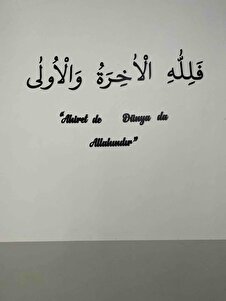 فَلِلّٰهِ الْاٰخِرَةُ وَالْاُولٰى
“Ahiret de Dünya da
Allahındır”